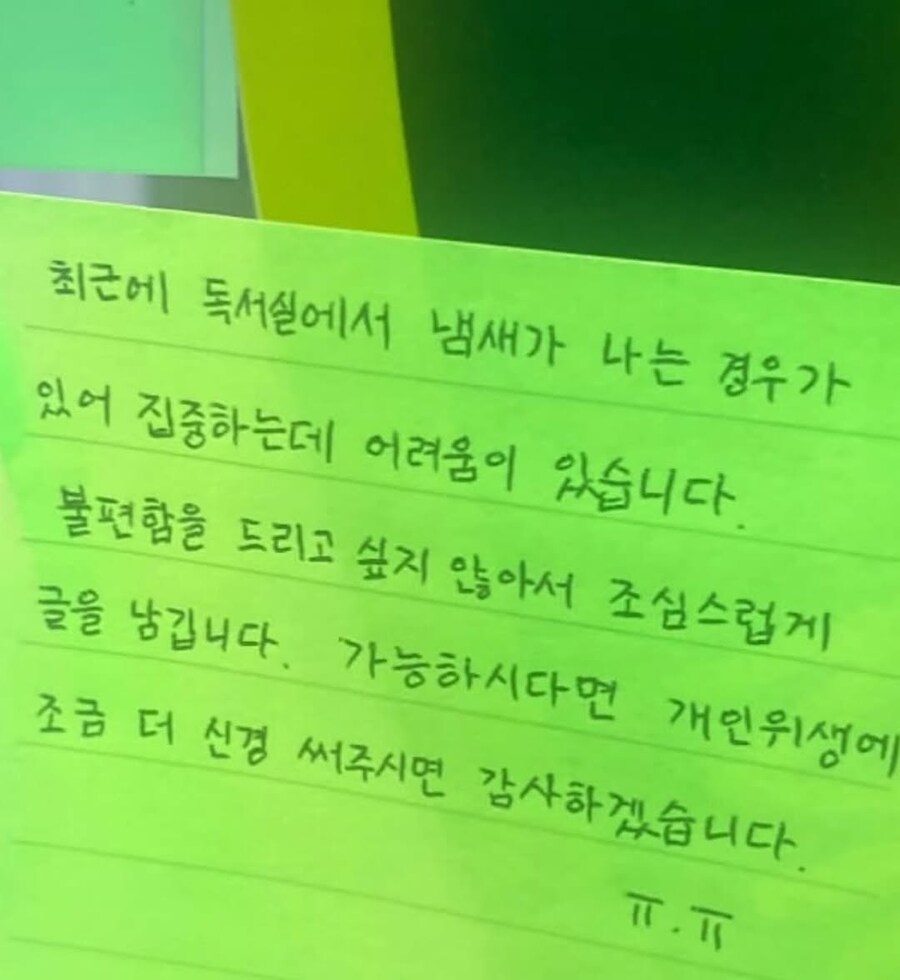 최근에 독서실에서 냄새가 나는 경우가
있어 집중하는데 어려움이 있습니다.
불편함을 드리고 싶지 않아서 조심스럽게
글을 남깁니다. 가능하시다면 개인위생에
조금 더 신경 써주시면 감사하겠습니다.
ㅠ.ㅠ